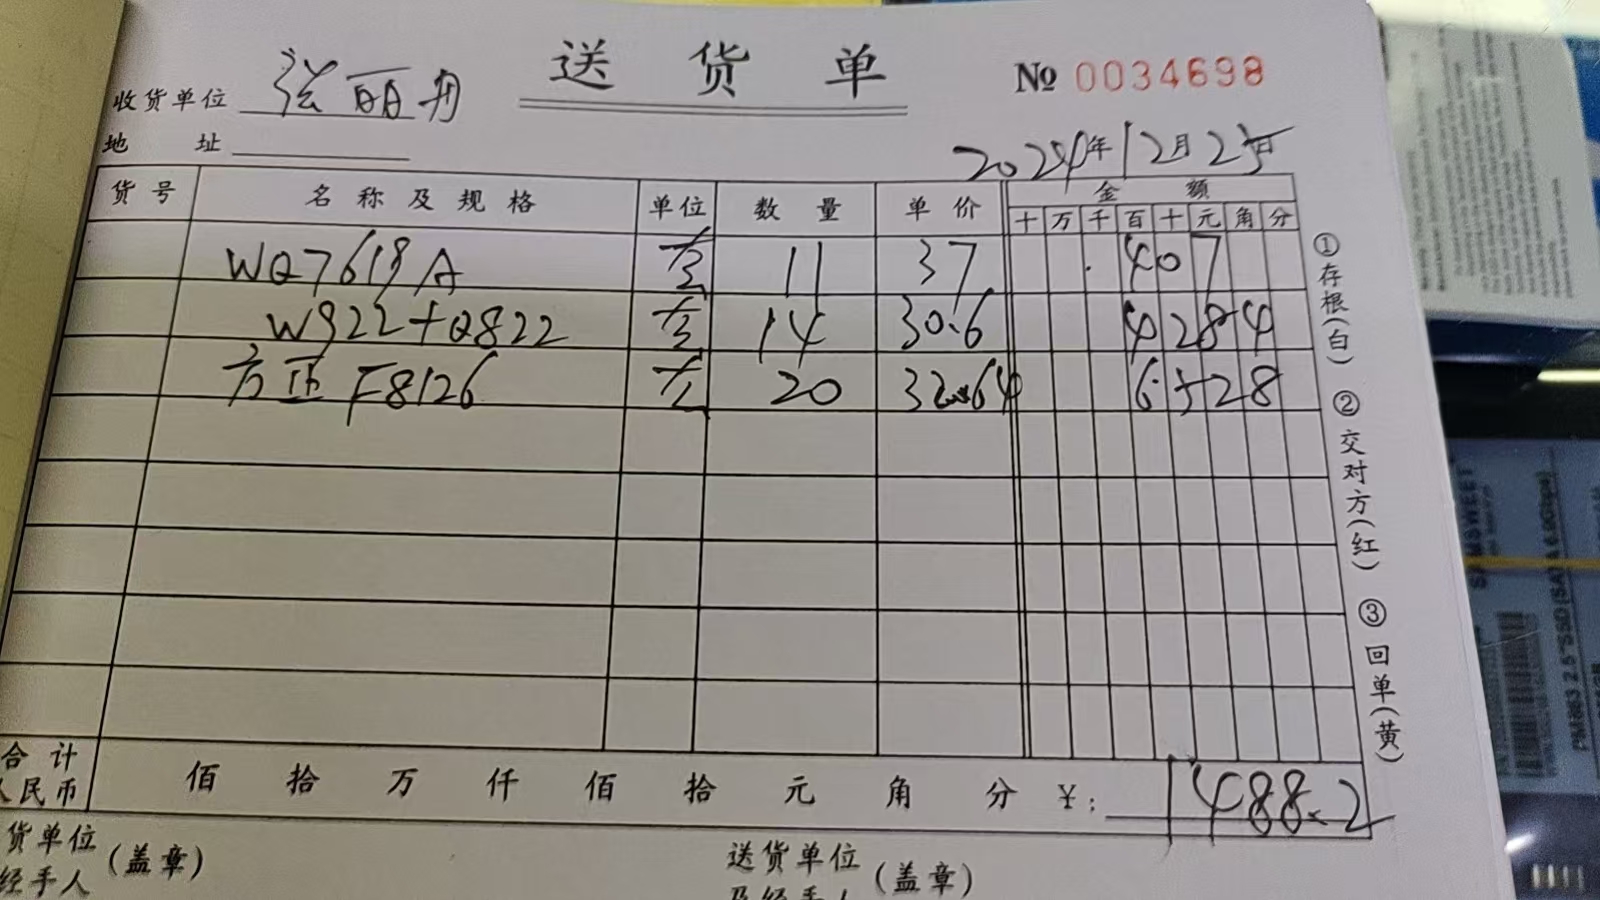 送货单
№ 0034698
收货单位 张丽丹
地 址
2024年12月25日
货号 名称及规格 单位 数量 单价 金额
十 万 千 百 十 元 角 分
WQ7619A 套 11 37 407
W922+Q822 套 14 30.6 428 4
方正 F8126 套 20 32.64 6528
①存根(白) ②交对方(红) ③回单(黄)
合计
人民币 佰 拾 万 仟 佰 拾 元 角 分 ¥: 1488.2
货单位 (盖章) 送货单位 (盖章)
经手人 及经手人
SAMSWEET
PM863 2.5"SSD(SATA 6.0Gbps)